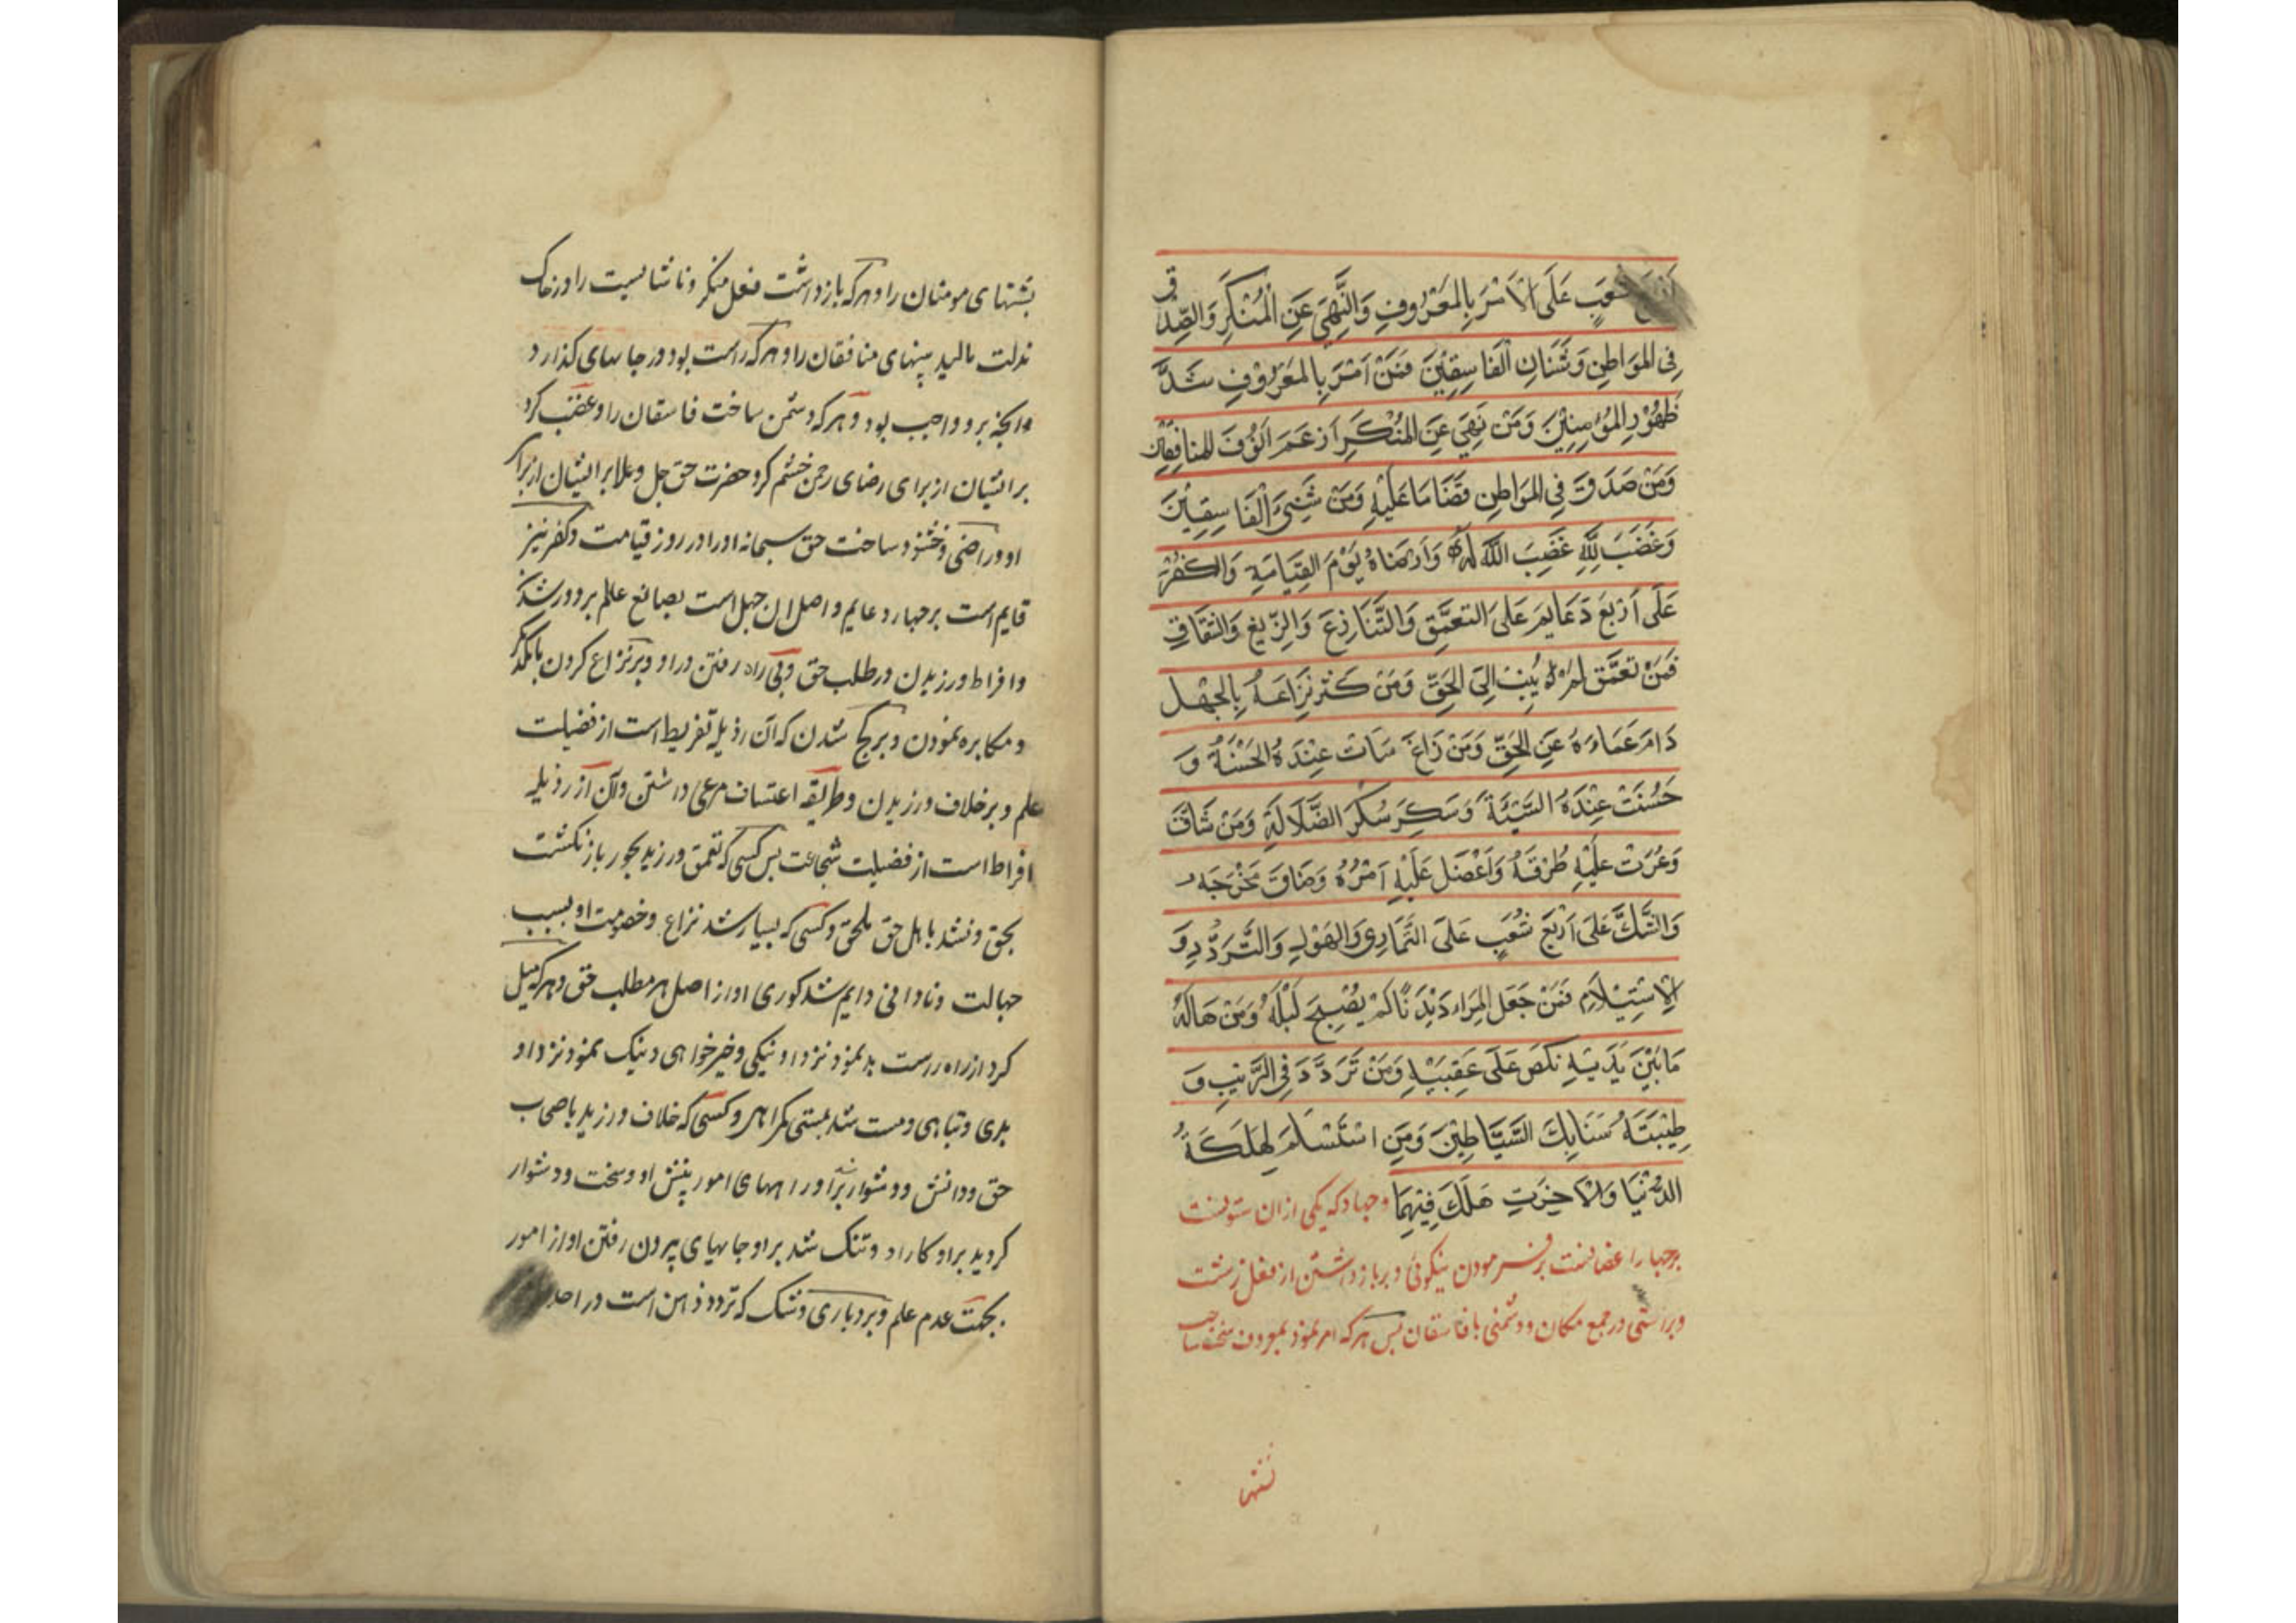 شعب على الامر بالمعروف والنهي عن المنكر والصدق
في المواطن وشنان الفاسقين فمن امر بالمعروف شد
ظهور المؤمنين ومن نهي عن المنكر ارغم انوف المنافقين
ومن صدق في المواطن قضا ما عليه ومن شنئ الفاسقين
وغضب لله غضب الله له وارضاه يوم القيامة والكفر
على اربع دعايم على التعمق والتنازع والزيغ والشقاق
فمن تعمق لم ينب الى الحق ومن كثر نزاعه بالجهل
دام عماءه عن الحق ومن زاغ ساءت عنده الحسنة و
حسنت عنده السيئة وسكر سكر الضلالة ومن شاق
وعرت عليه طرقه واعضل عليه امره وضاق مخرجه
والشك على اربع شعب على التماري والهول والتردد و
الاستسلام فمن جعل المراء ديدنا لم يصبح ليله ومن هاله
ما بين يديه نكص على عقبيه ومن تردد في الريب و
طئته سنابك الشياطين ومن استسلم لهلكة
الدنيا والاخرت هلك فيهما وجهاد كه يكى ازان ستونست
برچهار اغصانست برفرمودن نيكوئى وبر بازداشتن از فعل زشت
وبراستى در جميع مكان ودشمنى با فاسقان پس هركه امر نمود بمعروف سخت ساخت
پشتهاى مومنان را وهركه بازداشت فعل منكر وناشايست را در خاك
مذلت ماليد بينهاى منافقان را وهركه راست بود در جايهاى گذارد
وانچه بر و واجب بود وهركه دشمن ساخت فاسقان را وغضب كرد
برايشان از براى رضاى رحمن خشم كرد حضرت حق جل وعلا برايشان از براى
او وراضى وخشنود ساخت حق سبحانه او را در روز قيامت وكفر نيز
قايم است بر چهار دعايم واصل ان جهل است بصانع عالم بر دور شدن
وافراط ورزيدن در طلب حق وبى راه رفتن در او وبر نزاع كردن با يكديگر
ومكابره نمودن وبر كج شدن كه آن رذيله تفريط است از فضيلت
علم وبر خلاف ورزيدن وطريقه اعتساف مرعى داشتن وآن از رذيله
افراط است از فضيلت شجاعت پس كسى كه تعمق ورزيد بجور باز نكشت
بحق ونشد با اهل حق ملحق وكسى كه بسيار شد نزاع وخصومت او بسبب
جهالت ونادانى دايم شد كورى او از اصل هر مطلب حق وهركه ميل
كرد از راه راست بد نمود نزد او نيكى وخير خواهى ونيك نمود نزد او
بدى وتباهى ومست شد بمستى گمراهى وكسى كه خلاف ورزيد با صاحب
حق ودانش ودشوار برآورد راههاى امور پيش او وسخت ودشوار
كرديد براو كار او وتنك شد براو جايهاى بيرون رفتن او از امور
بجهت عدم علم وبردبارى وشك كه تردد ذهن است در احد